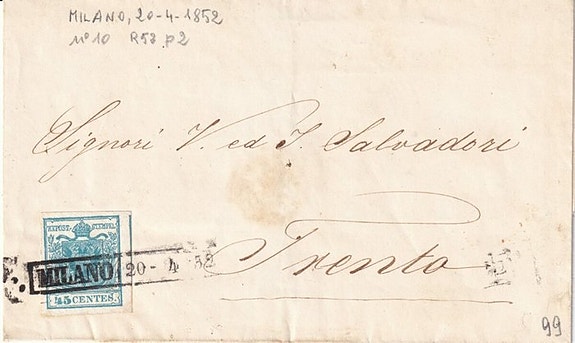 MILANO, 20-4-1852
n° 10 R53 p2
Signori V. ed I. Salvadori
Trento
KKPOST-STEMPEL
MILANO 20-4 52
45 CENTES.
99